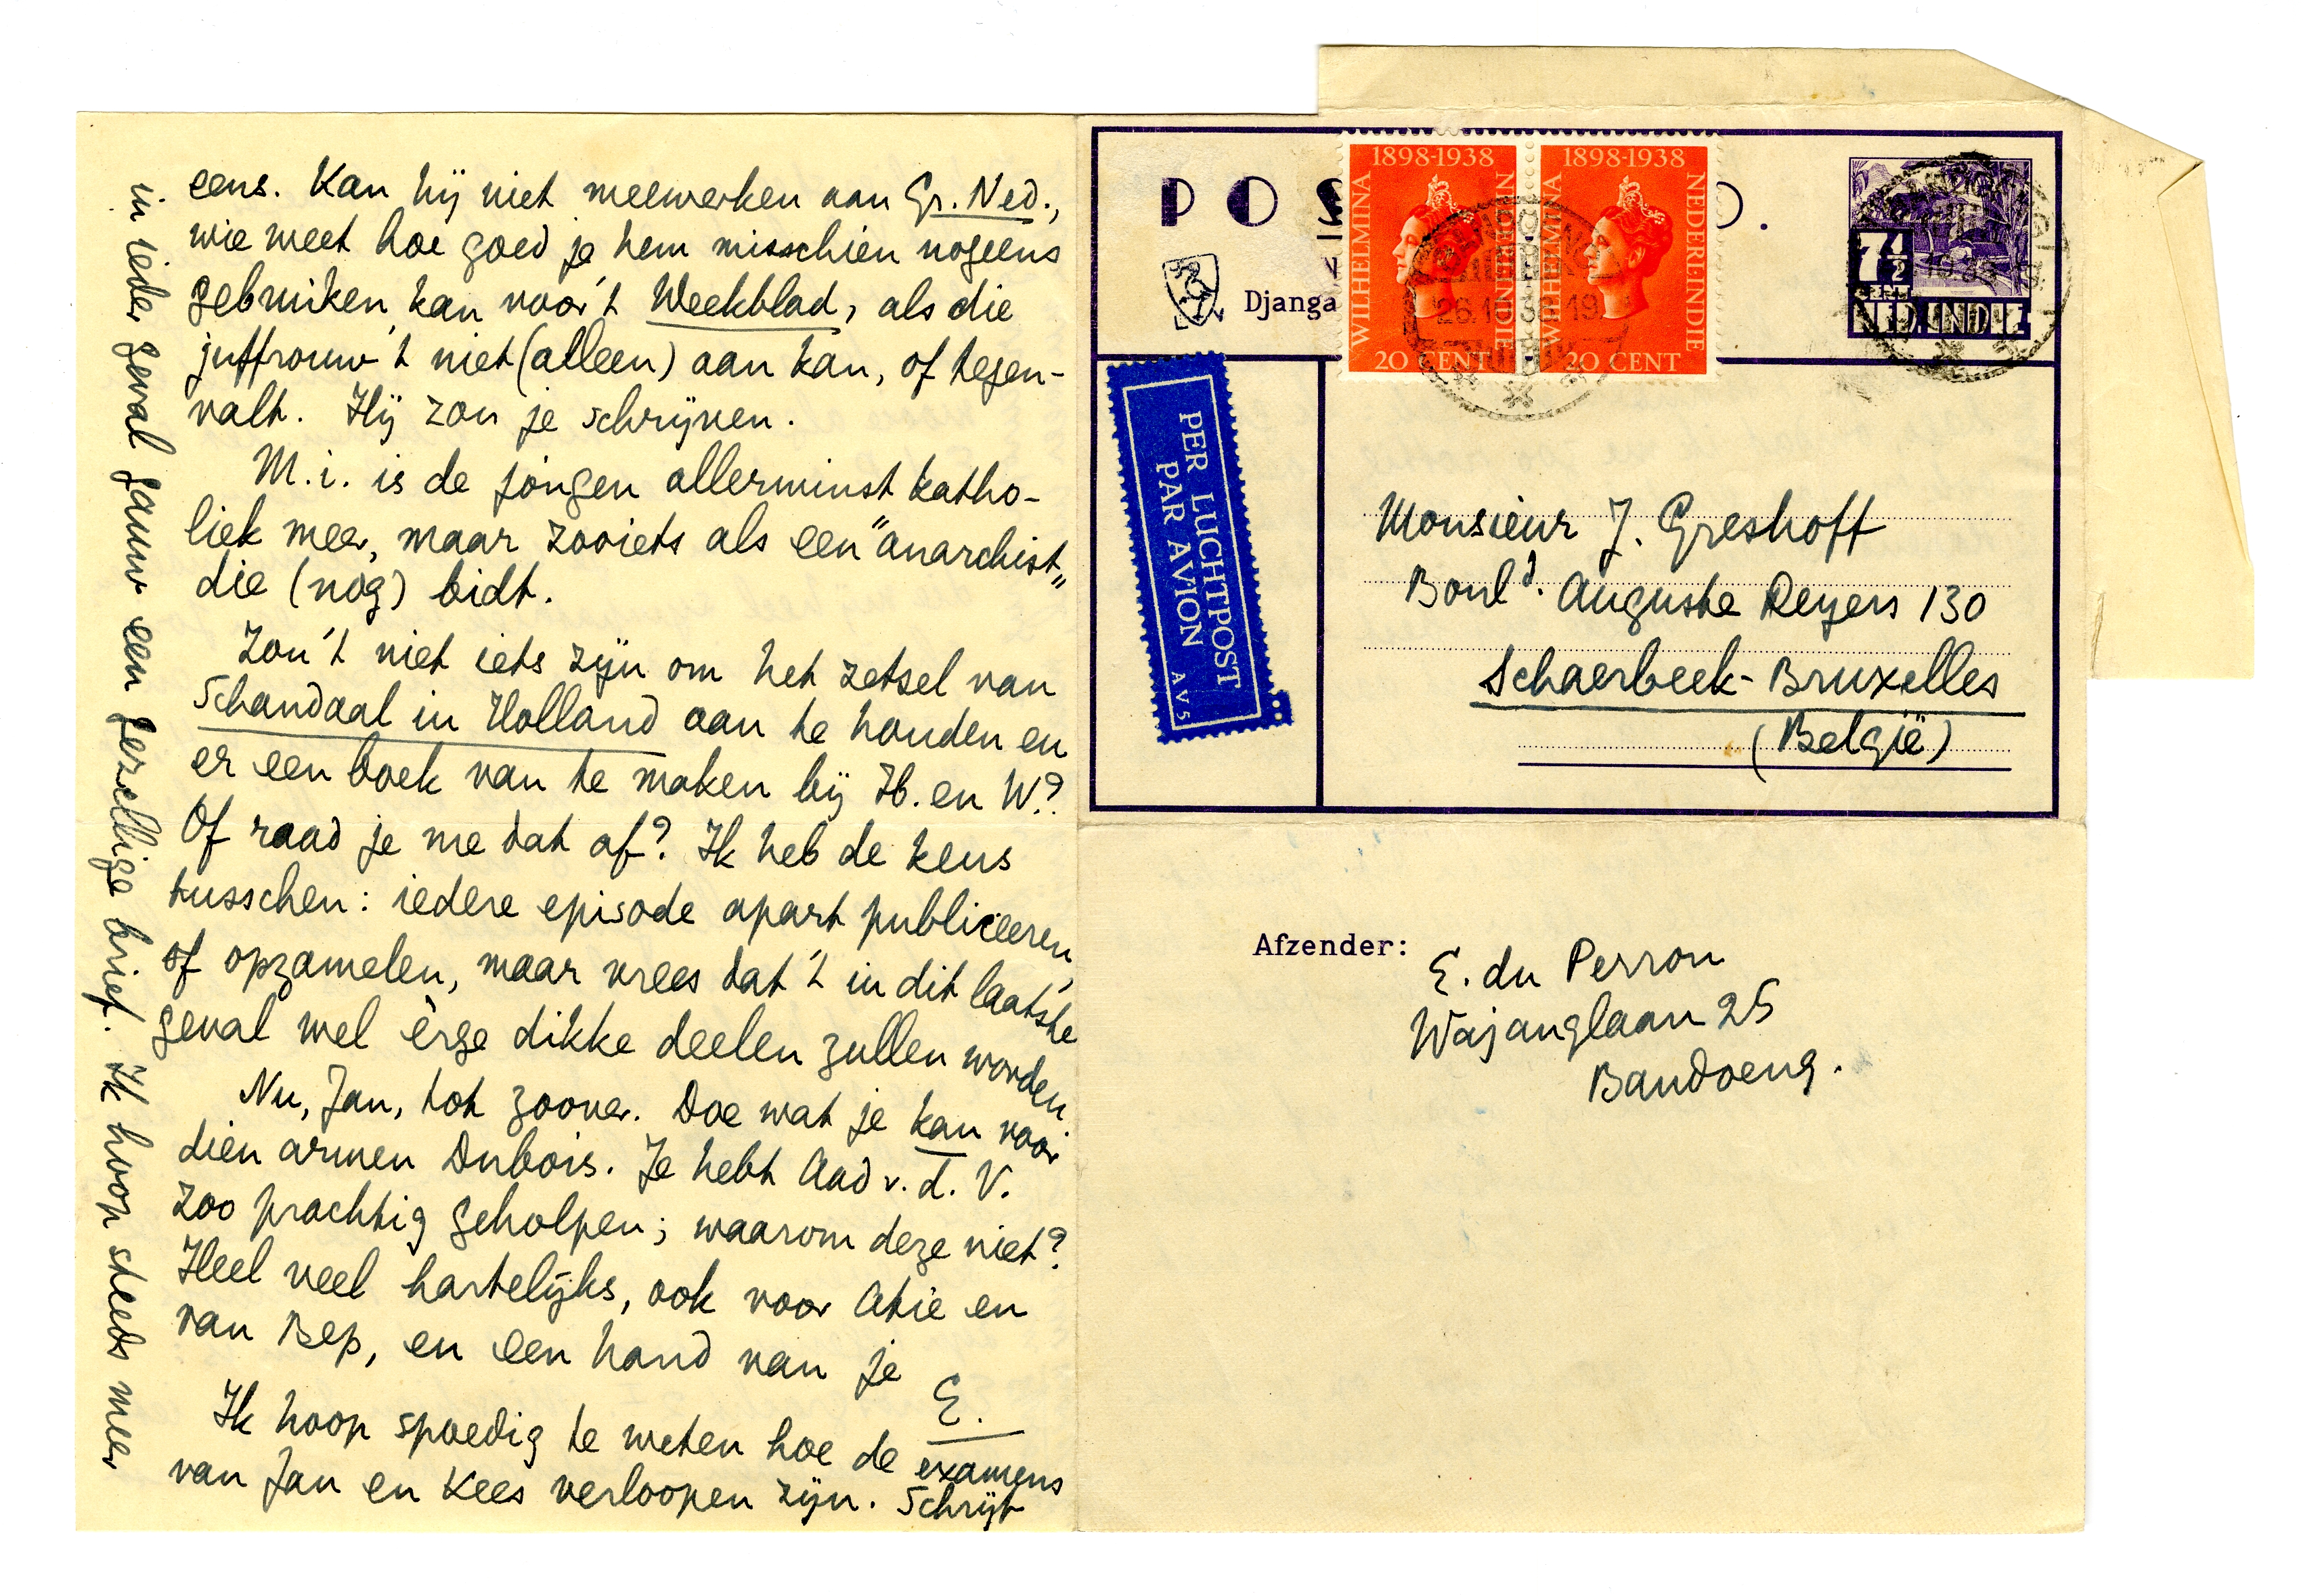 eens. Kan hij niet meewerken aan Gr. Ned.,
wie weet hoe goed je hem misschien nogeens
gebruiken kan voor 't Weekblad, als die
juffrouw 't niet (alleen) aan kan, of tegen-
valt. Hij zou je schrijven.
M.i. is de jongen allerminst katho-
liek meer, maar zooiets als een "anarchist"
die (nog) bidt.
Zou 't niet iets zijn om het zetsel van
Schandaal in Holland aan te houden en
er een boek van te maken bij H. en W.?
Of raad je me dat af? Ik heb de keus
tusschen: iedere episode apart publiceeren,
of opzamelen, maar vrees dat 't in dit laatste
geval wel èrge dikke deelen zullen worden.
Nu, Jan, tot zoover. Doe wat je kan voor
dien armen Dubois. Je hebt Aad v. d. V.
zoo prachtig geholpen; waarom deze niet?
Heel veel hartelijks, ook voor Atie en
van Bep, en een hand van je
E.
Ik hoop spoedig te weten hoe de examens
van Jan en Kees verloopen zijn. Schrijf
in ieder geval gauw een gezellige brief. Ik hoop steeds meer
P O S
Djanga
1898-1938
WILHELMINA
NEDERL·INDIE
20 CENT
1898-1938
WILHELMINA
NEDERL·INDIE
20 CENT
7½
CENT
NED. INDIE
BANDOENG
26.10.38.19
PER LUCHTPOST
PAR AVION
AV5
Monsieur J. Greshoff
Boul<sup>d</sup>. Auguste Reyers 130
Schaerbeek-Bruxelles
(België)
Afzender:
E. du Perron
Wajanglaan 25
Bandoeng.